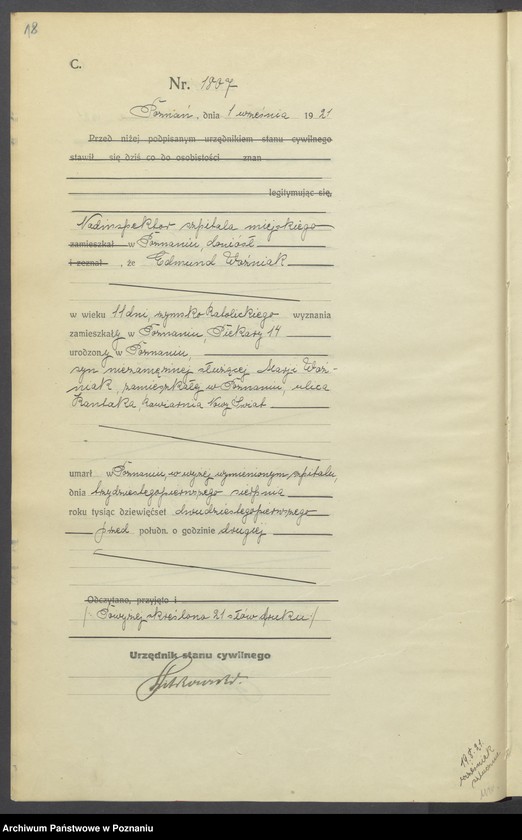 18
C.
Nr. 1807
Poznań, dnia 1 września 1921
Przed niżej podpisanym urzędnikiem stanu cywilnego
stawił się dziś co do osobistości znan
legitymując się,
Nadinspektor szpitala miejskiego
zamieszkał w Poznaniu, doniósł
i zeznał, że Edmund Woźniak
w wieku 11 dni, rzymsko katolickiego wyznania
zamieszkały w Poznaniu, Piekary 14
urodzony w Poznaniu,
syn niezamężnej służącej Marji Woź-
niak, zamieszkałej w Poznaniu, ulica
Kantaka, kawiarnia Nowy Świat
umarł w Poznaniu, w wyżej wymienionym szpitalu,
dnia trzydziestegopierwszego sierpnia
roku tysiąc dziewięćset dwudziestegopierwszego
przed połudn. o godzinie drugiej
Odczytano, przyjęto i
/ Powyżej skreślono 21 słów druku /
Urzędnik stanu cywilnego
Archiwum Państwowe w Poznaniu